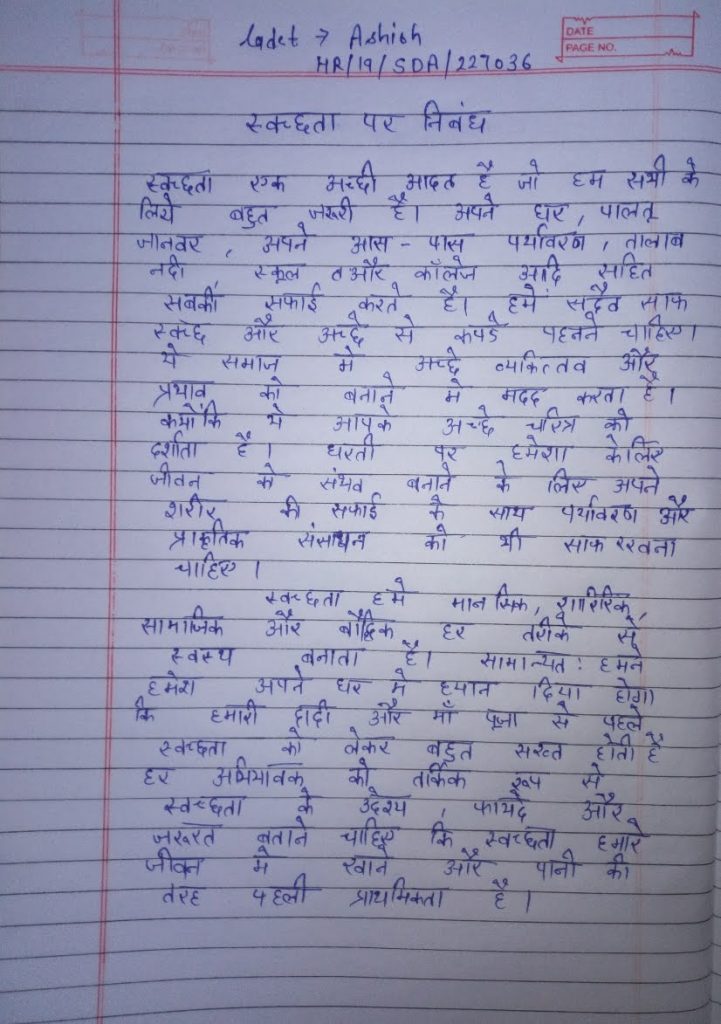 Cadet → Ashish
HR/19/SDA/227036
DATE
PAGE NO.
स्वच्छता पर निबंध
स्वच्छता एक अच्छी आदत है जो हम सभी के
लिये बहुत जरूरी है। अपने घर, पालतू
जानवर, अपने आस-पास पर्यावरण, तालाब
नदी, स्कूल त और कॉलेज आदि सहित
सबकी सफाई करते है। हमें सदैव साफ
स्वच्छ और अच्छे से कपडे पहनने चाहिए।
ये समाज मे अच्छे व्यक्तित्व और
प्रभाव को बनाने मे मदद करता है।
क्योंकि ये आपके अच्छे चरित्र को
दर्शाता है। धरती पर हमेशा केलिए
जीवन को संभव बनाने के लिए अपने
शरीर की सफाई के साथ पर्यावरण और
प्राकृतिक संसाधन को भी साफ रखना
चाहिए।
स्वच्छता हमे मानसिक, शारिरिक,
सामाजिक और बौद्धिक हर तरीके से
स्वस्थ बनाता है। सामान्यत: हमने
हमेशा अपने घर मे ध्यान दिया होगा
कि हमारी दादी और माँ पूजा से पहले
स्वच्छता को लेकर बहुत सख्त होती है
हर अभिभावक को तर्किक रूप से
स्वच्छता के उदेश्य, फायदे और
जरूरत बताने चाहिए कि स्वच्छता हमारे
जीवन मे खाने और पानी की
तरह पहली प्राथमिकता है।